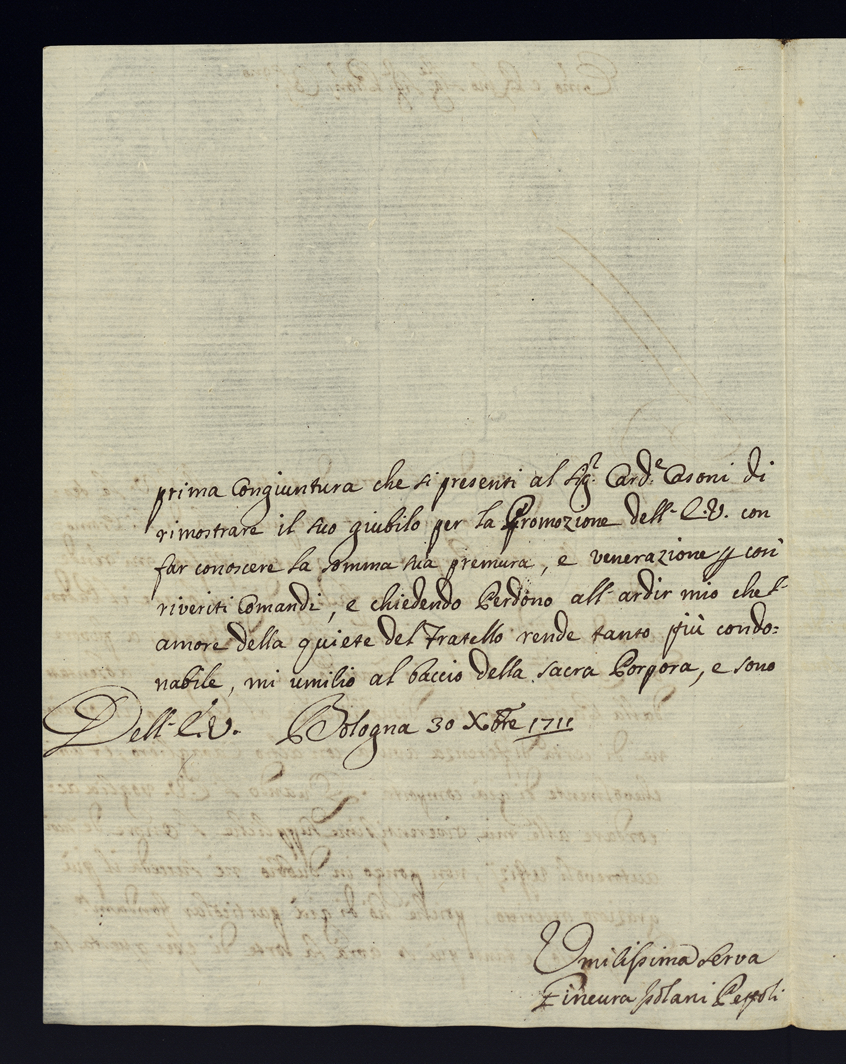 prima Congiuntura che si presenti al Sig.r Card.e Casoni di
rimostrare il suo giubilo per la Promozione dell' E.V. con
far conoscere la somma sua premura, e venerazione p così
riveriti Comandi, e chiedendo Perdono all' ardir mio che l'
amore della quiete del Fratello rende tanto più condo:
nabile, mi umilio al baccio della Sacra Porpora, e sono
Dell' E.V. Bologna 30 Xbre 1711
Umilissima Serva
Pepoli